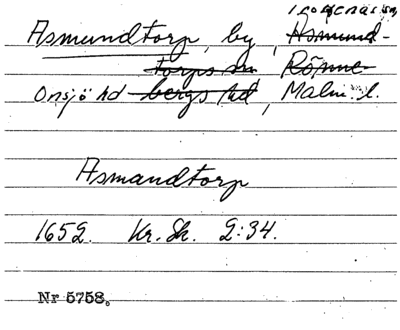 Asmundtorp, by, Asmund-
torps sn Rönne-
Onsjö hd bergs hd, Malm. l.
Asmandtorp
1652. Kr. Sk. 2:34.
Nr 5758.